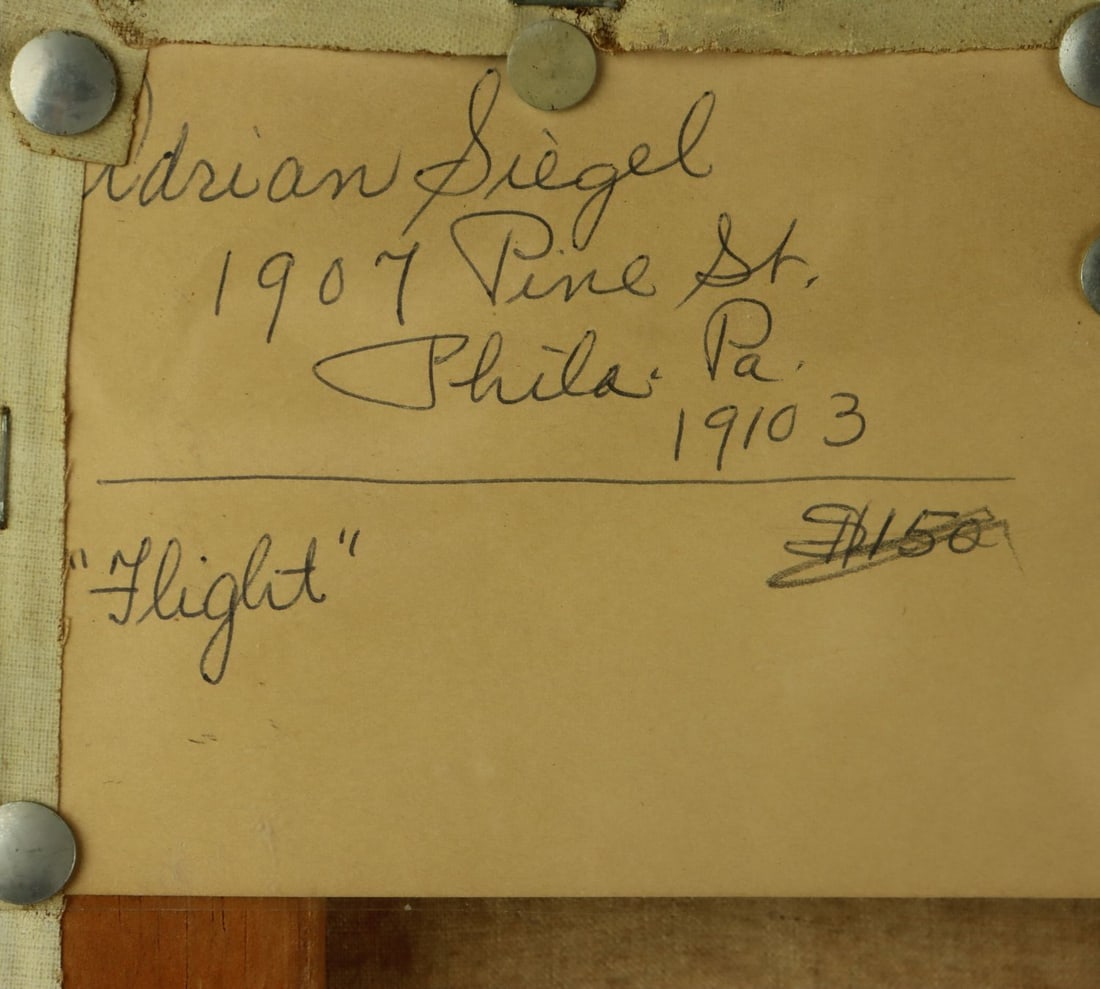 Adrian Siegel
1907 Pine St.
Phila. Pa.
19103
$150
"Flight"